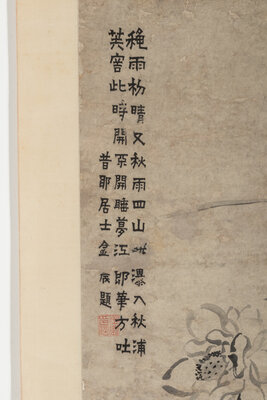 雨初晴又秋雨四山瀑入秋浦
芙容此時開不開睡夢江郎華方吐
昔耶居士金農題